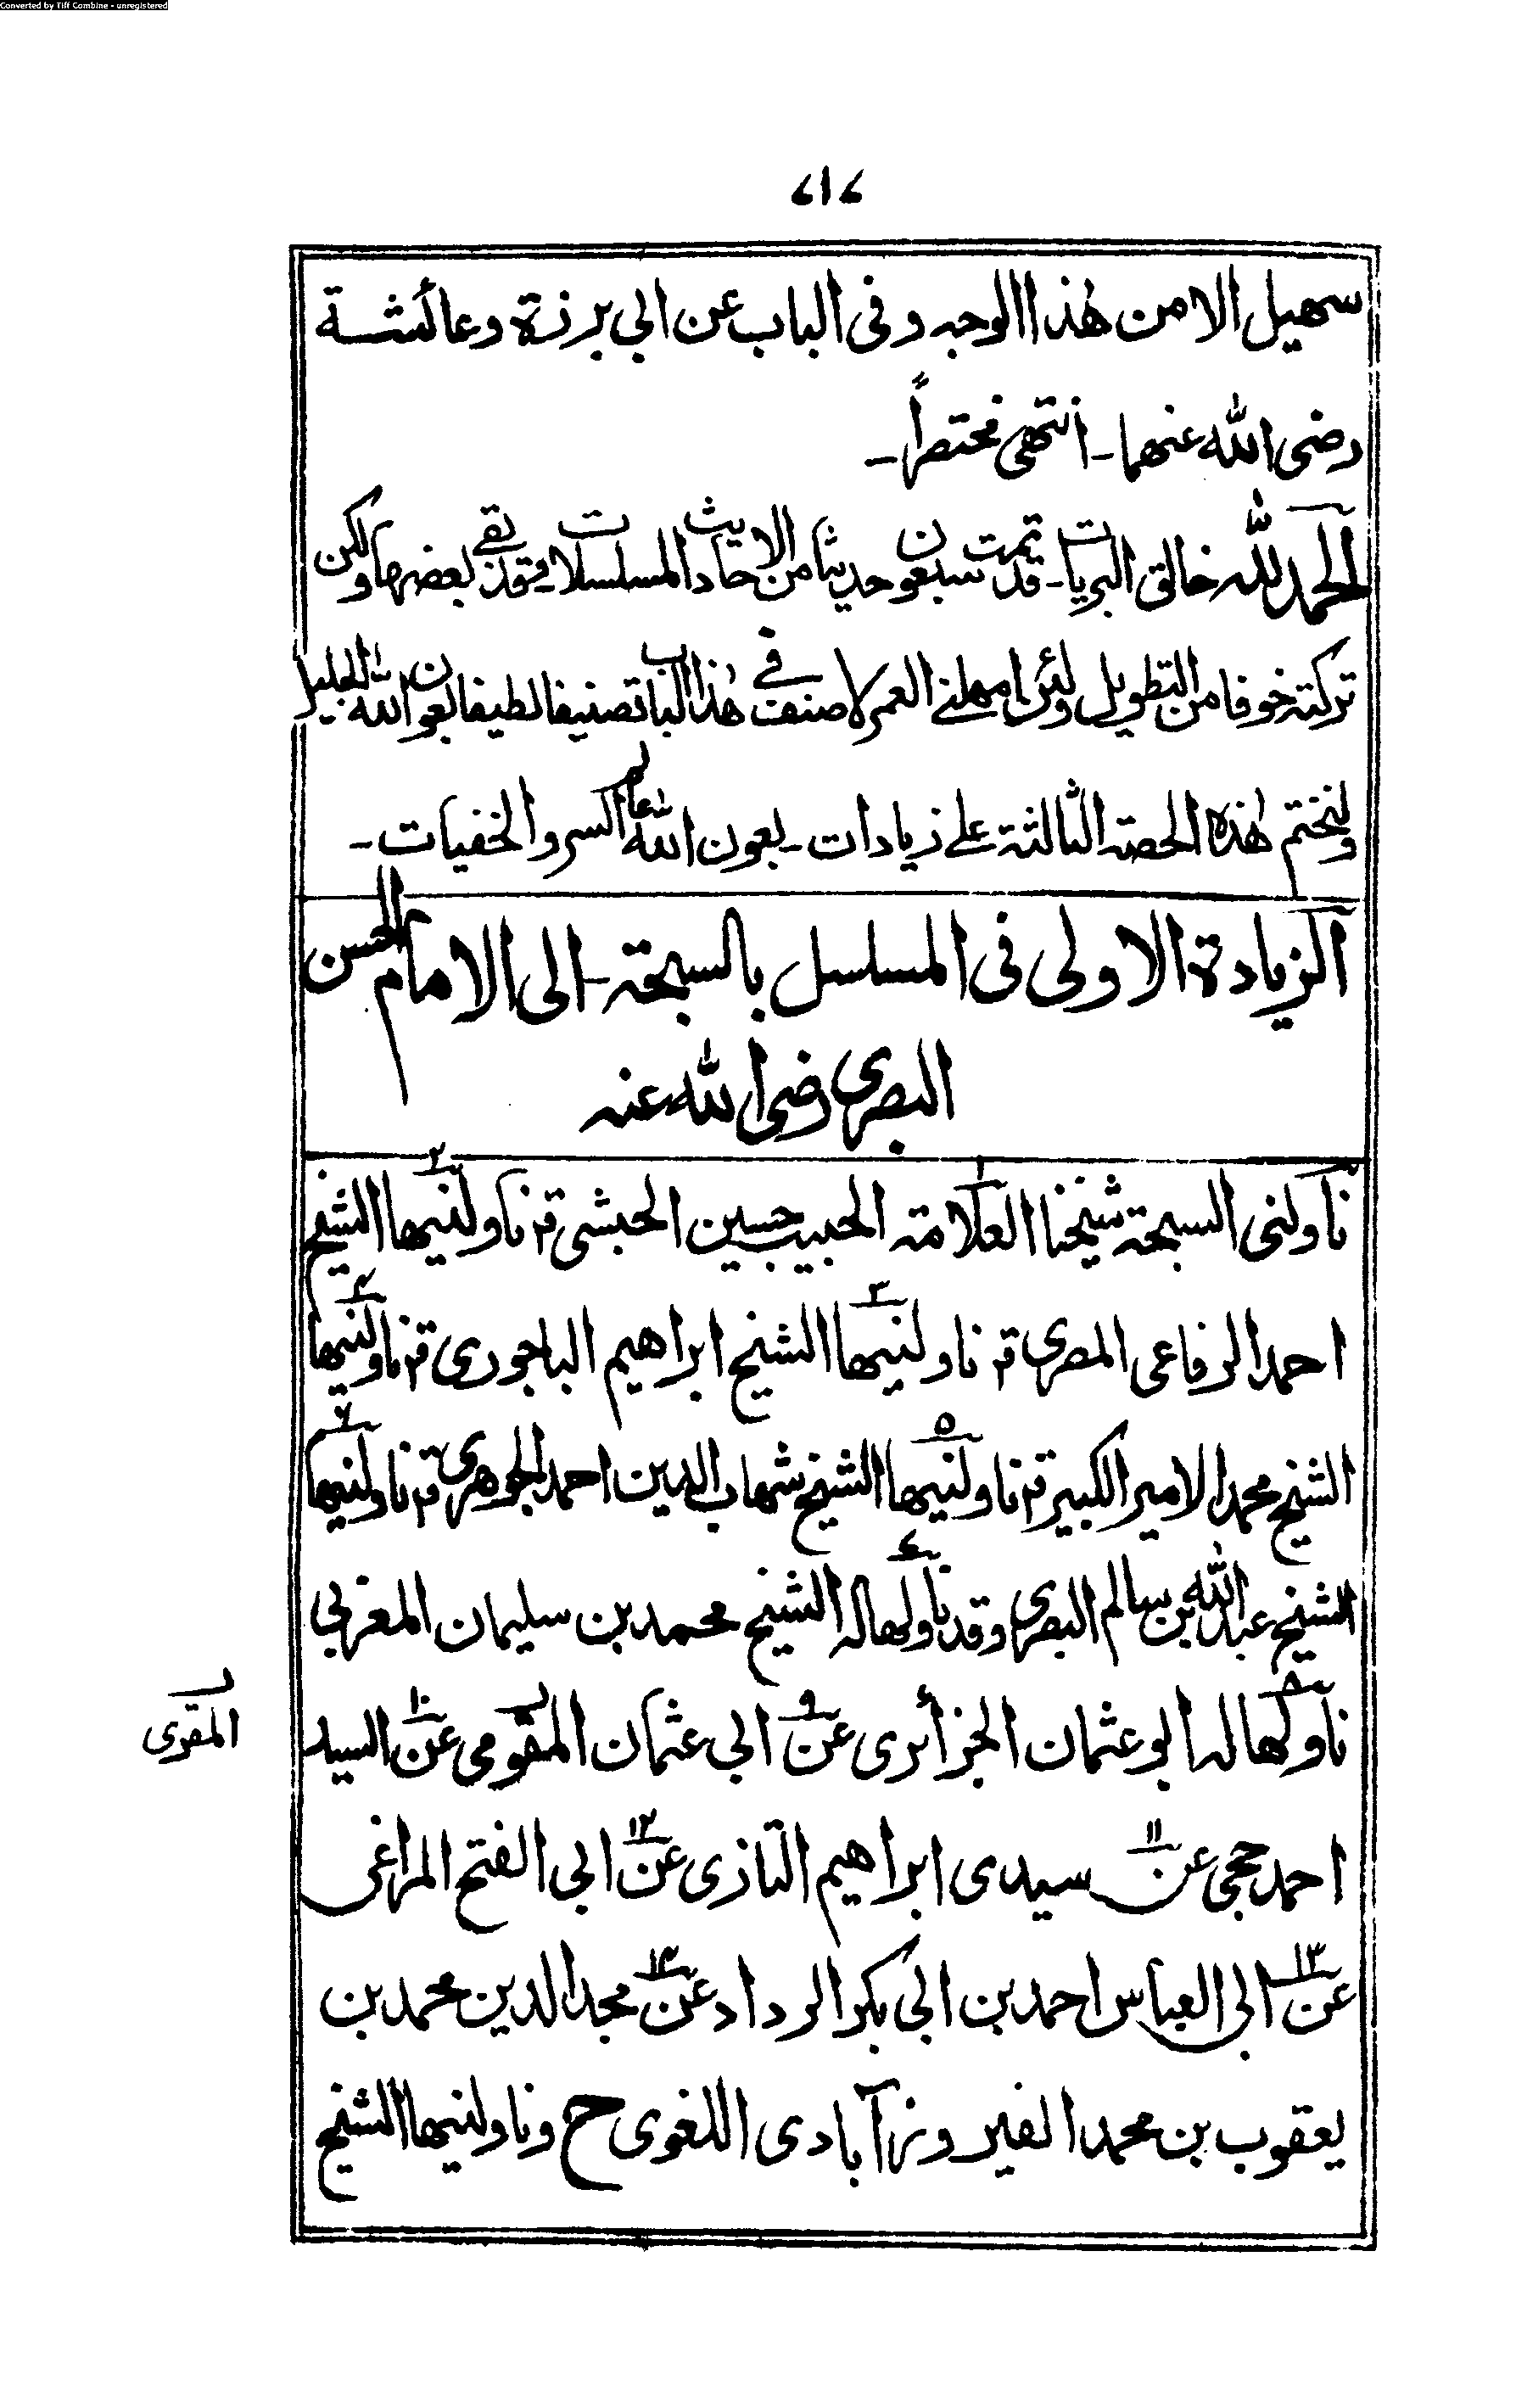 Converted by Tiff Combine - unregistered
۷۱۷
سهيل الا من هٰذا الوجه وفى الباب عن ابى برزة وعائشة
رضى الله عنهما ـ انتهى مختصراً ـ
الحمد لله خالق البريات ـ قد تمت سبعون حديثا من الاحاديث المسلسلات وقد بقى بعضها ولكن
تركته خوفا من التطويل ولئن امهلنى العمر لاصنف فى هٰذا الباب تصنيفا لطيفا بعون الله الجليل
ولنختم هٰذه الحصة الثالثة على زيادات ـ بعون الله عالم السر والخفيات ـ
الزيادة الاولى فى المسلسل بالسبحة ـ الى الامام الحسن
البصرى رضى الله عنه
ناولنى السبحة شيخنا العلامة ۱ الحبيب حسين الحبشى قر ناولنيها ۲ الشيخ
احمد الرفاعى المصرى قر ناولنيها ۳ الشيخ ابراهيم الباجورى قر ناولنيها ۴
الشيخ محمد الامير الكبير قر ناولنيها ۵ الشيخ شهاب الدين احمد الجوهرى قر ناولنيها ۶
الشيخ عبد الله بن سالم البصرى وقد ناولها له ۷ الشيخ محمد بن سليمان المغربى
ناولها له ۸ ابو عثمان الجزائرى عن ۹ ابى عثمان المقومى عن ۱۰ السيد
المقرى
احمد حجى عن ۱۱ سيدى ابراهيم التازى عن ۱۲ ابى الفتح المراغى
عن ۱۳ ابى العباس احمد بن ابى بكر الرداد عن ۱۴ مجد الدين محمد بن
يعقوب بن محمد الفيروزآبادى اللغوى ح وناولنيها الشيخ